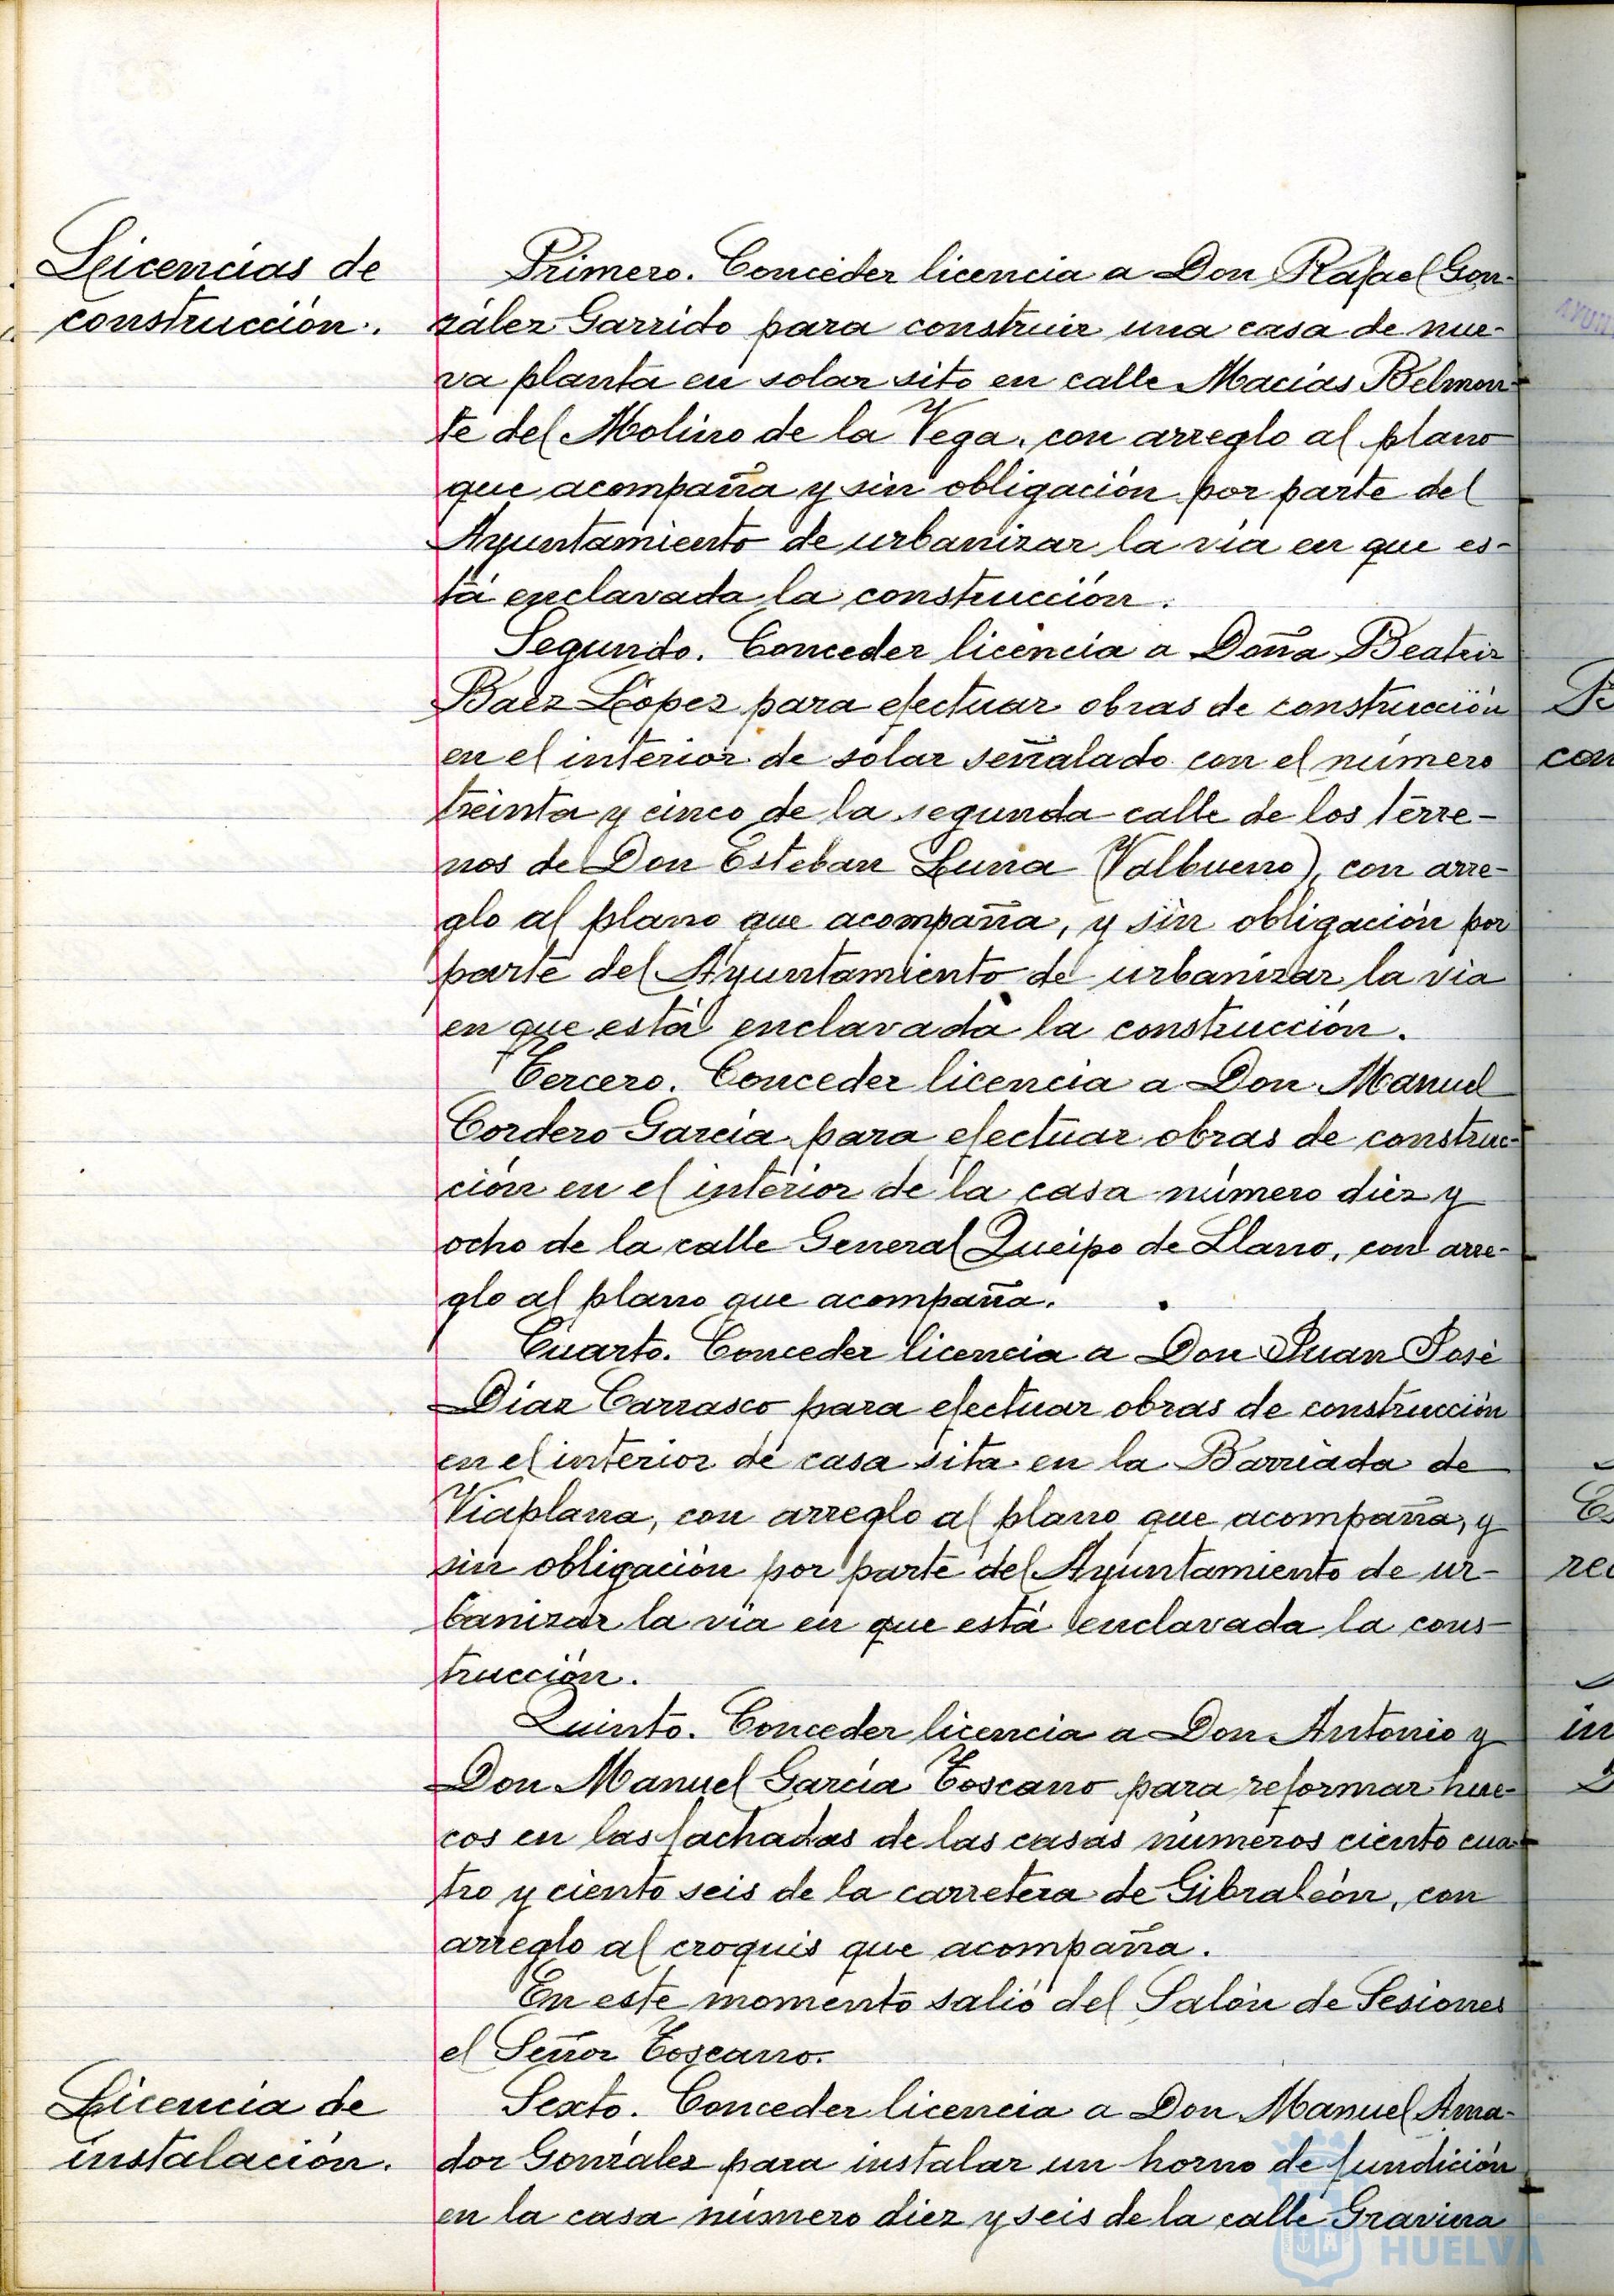 Licencias de
construcción.
Primero. Conceder licencia a Don Rafael Gon-
zález Garrido para construir una casa de nue-
va planta en solar sito en calle Macías Belmon-
te del Molino de la Vega, con arreglo al plano
que acompaña y sin obligación por parte del
Ayuntamiento de urbanizar la vía en que es-
tá enclavada la construcción.
Segundo. Conceder licencia a Doña Beatriz
Baez López para efectuar obras de construcción
en el interior de solar señalado con el número
treinta y cinco de la segunda calle de los terre-
nos de Don Esteban Luna (Valbueno), con arre-
glo al plano que acompaña, y sin obligación por
parte del Ayuntamiento de urbanizar la vía
en que está enclavada la construcción.
Tercero. Conceder licencia a Don Manuel
Cordero García para efectuar obras de construc-
ción en el interior de la casa número diez y
ocho de la calle General Queipo de Llano, con arre-
glo al plano que acompaña.
Cuarto. Conceder licencia a Don Juan José
Díaz Carrasco para efectuar obras de construcción
en el interior de casa sita en la Barriada de
Viaplana, con arreglo al plano que acompaña, y
sin obligación por parte del Ayuntamiento de ur-
banizar la vía en que está enclavada la cons-
trucción.
Quinto. Conceder licencia a Don Antonio y
Don Manuel García Toscano para reformar hue-
cos en las fachadas de las casas números ciento cua-
tro y ciento seis de la carretera de Gibraleón, con
arreglo al croquis que acompaña.
En este momento salió del Salón de Sesiones
el Señor Toscano.
Licencia de
instalación.
Sexto. Conceder licencia a Don Manuel Ama-
dor González para instalar un horno de fundición
en la casa número diez y seis de la calle Gravina
HUELVA